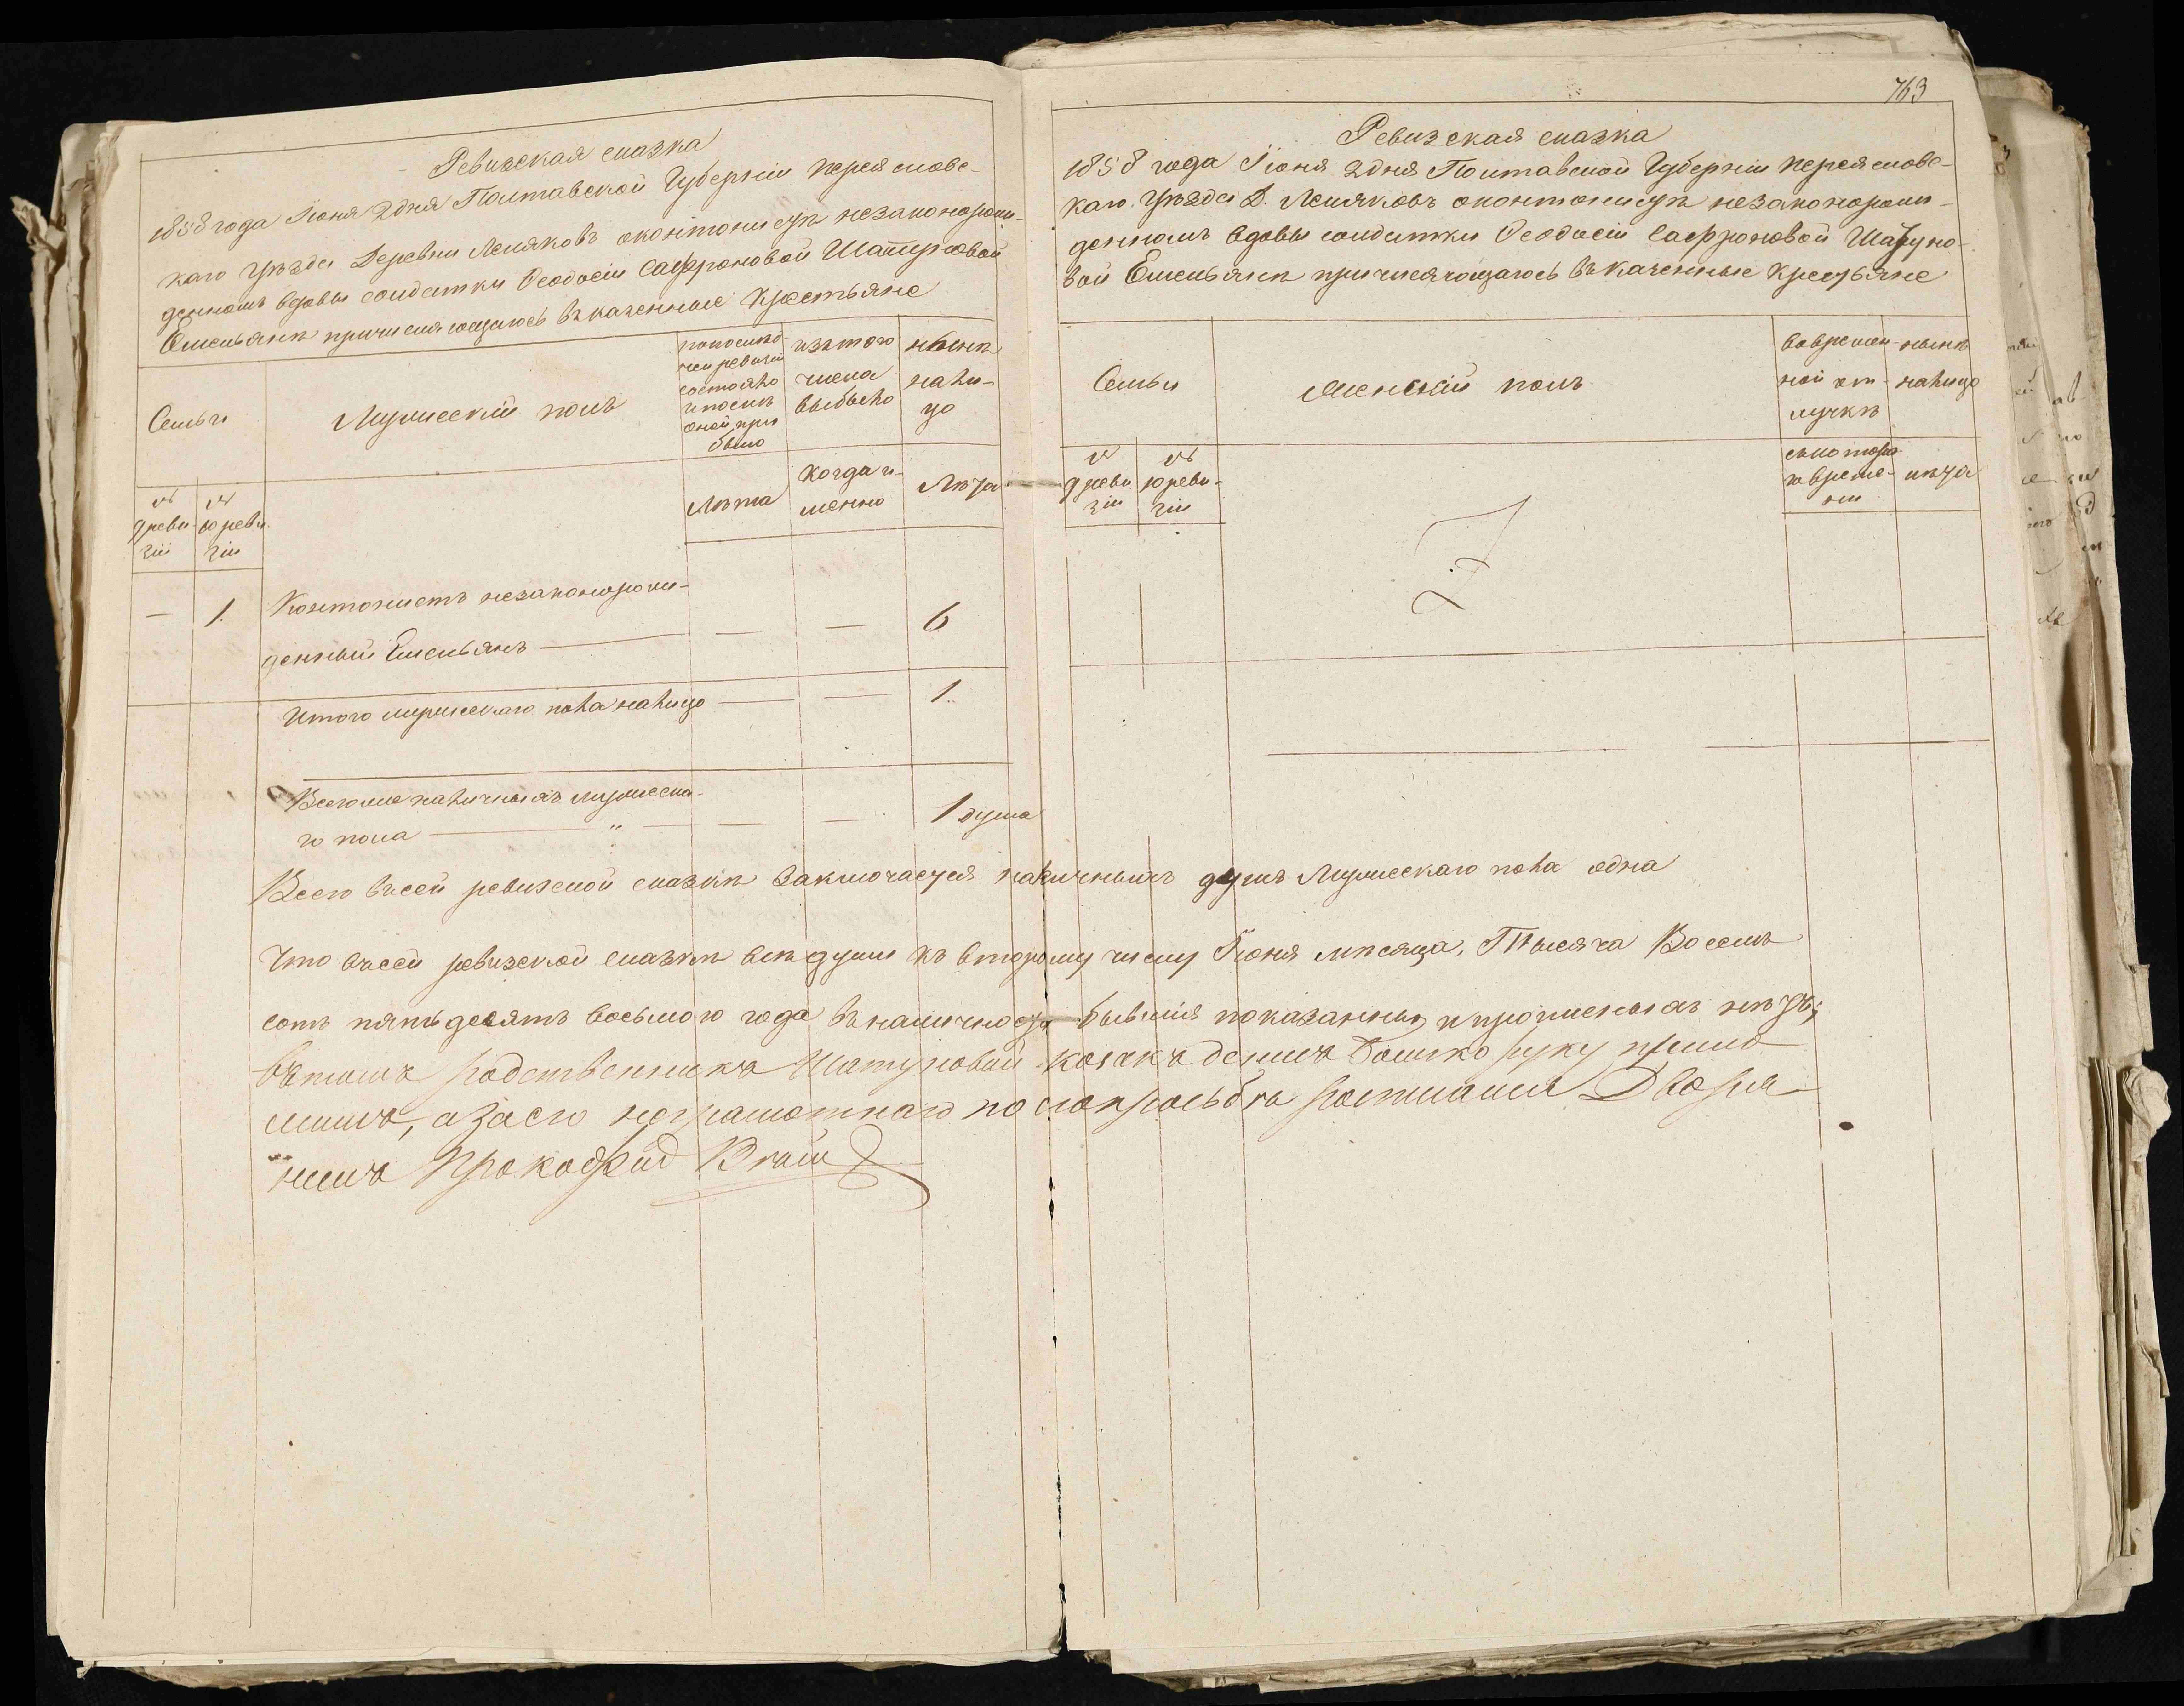 Ревизская сказка
1858 года Іюня 2 дня Полтавской Губерніи Переяславс-
каго Уѣзда Деревни Леляковъ окантонистѣ незаконорож-
денномъ вдовы солдатки Ѳеодосіи Сафроновой Шатуновой
Емельянѣ причисляющагось въ казенные Крестьяне
Семьи
Мужескій полъ
по послѣд-
ней ревизіи
состояло
и послѣ
оной при
было
изъ того
числа
выбыло
нынѣ
нали-
цо
9 реви
зіи
10 реви
зіи
Лѣта
когда и-
менно
Лѣта
— 1. Кантонистъ незаконорож-
денный Емельянъ — — — 6
Итого мужескаго пола налицо — — 1.
Всего же наличныхъ мужеска-
го пола — " — — — 1 душа
763
Ревизская сказка
1858 года Іюня 2 дня Полтавской Губерніи Переяславс-
каго Уѣзда Д. Леляковъ окантонистѣ незаконорож-
денномъ вдовы солдатки Ѳеодосіи Сафроновой Шатуно-
вой Емельянѣ причисляющагось въ казенные крестьяне
Семьи
Женскій полъ
во времен-
ной от-
лучкѣ
нынѣ
налицо
9 реви
зіи
10 реви-
зіи
съ котора-
го време-
ни
лѣта
Всего въ сей ревизской сказкѣ заключается наличныхъ душъ Мужескаго пола одна
Что въ сей ревизской сказкѣ всѣ души къ второму числу Іюня мѣсяца, Тысяча Восемь
сотъ пятьдесятъ восьмого года въ наличности бывшія показанны и прописныхъ нѣтъ;
въ томъ родственника Шатуновой козакъ Денисъ Бошко руку прило
жилъ, а за его неграмотнаго по его прозьбѣ росписался Дворя-
нинъ Прокофій